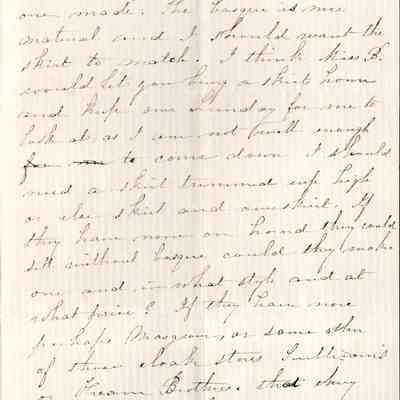 one made. The basque as nice
material and I should want the
skirt to match. I think Miss B.
would let you bring a skirt home
and keep one Sunday for me to
look at as I am not well enough
for me to come down I should
need a skirt trimmed up high
or else skirt and overskirt. If
they have none on hand they could
sell without basque could they make
one and in what style and at
what price? If they have none
perhaps or some other
of those cloak stores
or Brothers. that they